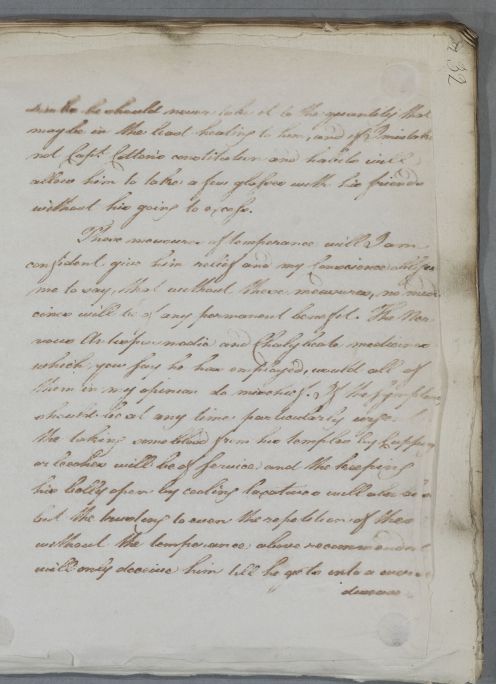 32
he should never take it to the quantity that
may be in the least heating to him, and if I mistake
not Capt. Cotton's constitution and habits will
allow him to take a few glasses with his friends
without his going to excess.
These measures of temperance will I am
confident give him relief and my Conscience obliges
me to say, that without these measures, no medi
cines will be of any permanent benefit. The Ner
vous Antispasmodic and Chalybeate medicines
which you say he has employed, would all of
them in my opinion do mischief. If the symptoms
should be at any time particularly urgent
the taking some blood from his temples by cupping
or leeches will be of service and the keeping
his belly open by cooling laxatives will also
but the trusting to even the repetition of these
without the temperance above recommended
will only deceive him till he gets into a worse
disease